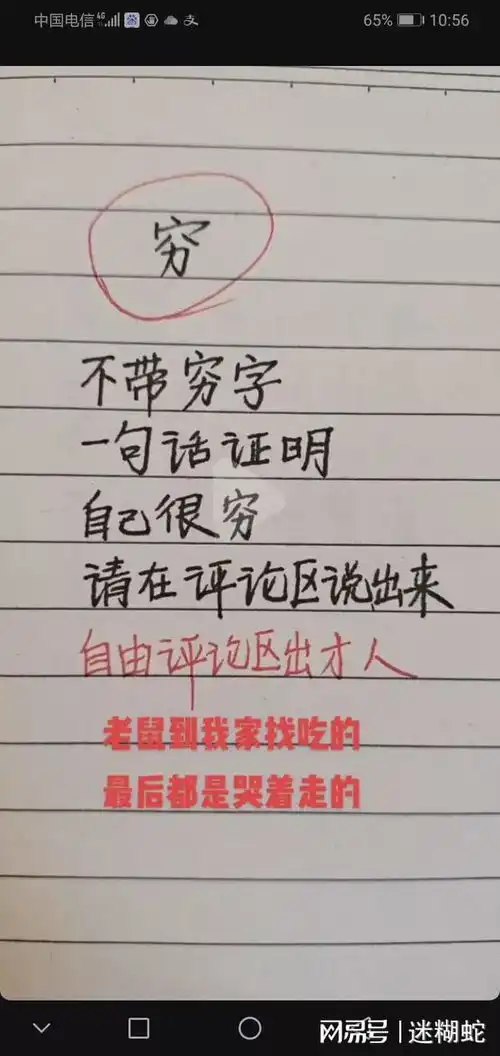 中国电信 4G 65% 10:56
穷
不带穷字
一句话证明
自己很穷
请在评论区说出来
自由评论区出才人
老鼠到我家找吃的
最后都是哭着走的
网易号 | 迷糊蛇